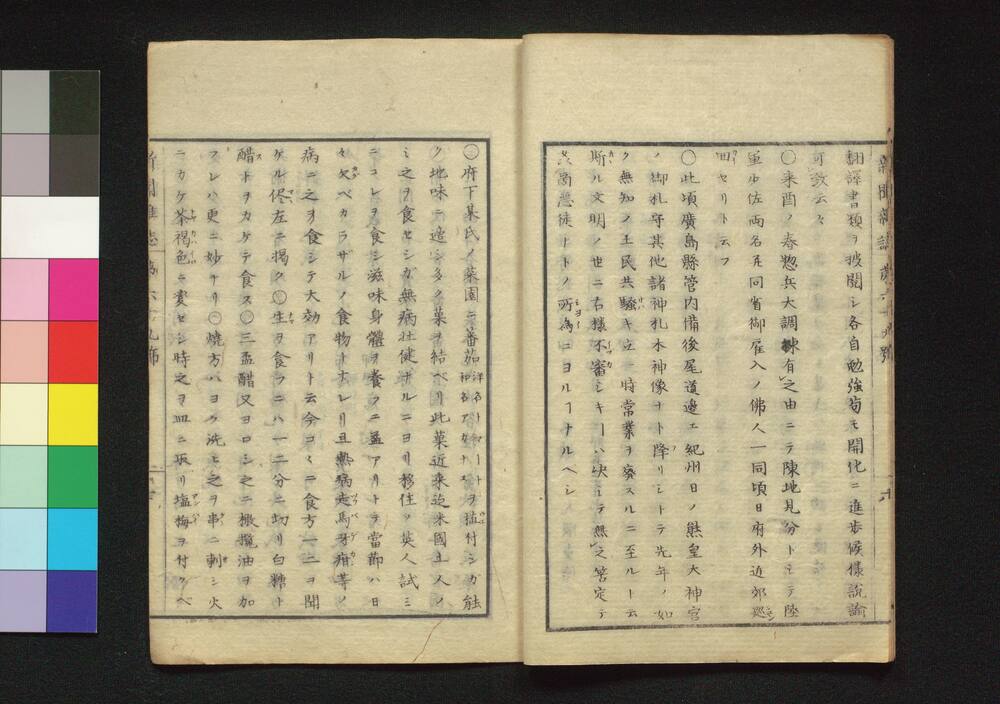 新聞雜誌
飜譯書類ヲ披閲シ各自勉強苟モ開化ニ進歩候樣説諭
可致云々
〇来酉ノ春惣兵大調練有之由ニテ陳地見分トシテ陸
軍少佐両名并同省御雇入ノ佛人一同頃日府外近郊廵
回セリト云フ
〇此頃廣島縣管内備後尾道邊エ紀州日ノ熊皇大神宮
ノ御札守其他諸神札木神像ナト降リシトテ先年ノ如
ク無知ノ土民共騒キ立一時常業ヲ廢スルニ至ルト云
斯ル文明ノ世ニ右樣不審シキヿハ决シテ無之筈定テ
奸惡徒トトノ所為ニヨルヿナルベシ
〇府下某氏ノ菜園ニ蕃茄洋名トマートヲ植付シガ能
和名アカナス
ク地味ニ適シ多ク菓ヲ結ベリ此菓近来迄米國土人ノ
ミ之ヲ食セシガ無病壮健ナルニヨリ移住ノ英人試ミ
ニコレヲ食シ滋味身體ヲ養フニ益アリトテ當節ハ日
々欠ベカラザルノ食物トナレリ且熱病走馬牙疳等ノ
病ニ之ヲ食シテ大効アリト云今コヽニ食方一二ヲ聞
ケル侭左ニ掲ク〇生ヲ食フニハ一二分ニ切リ白糖ト
醋トヲカケテ食ス〇三盃醋又ヨロシ之ニ橄欖油ヲ加
フレハ更ニ妙ナリ〇燒方ハヨク洗上之ヲ串ニ刺シ火
ニカケ茶褐色ニ変セシ時之ヲ皿ニ取リ塩梅ヲ付クベ
新聞雜誌